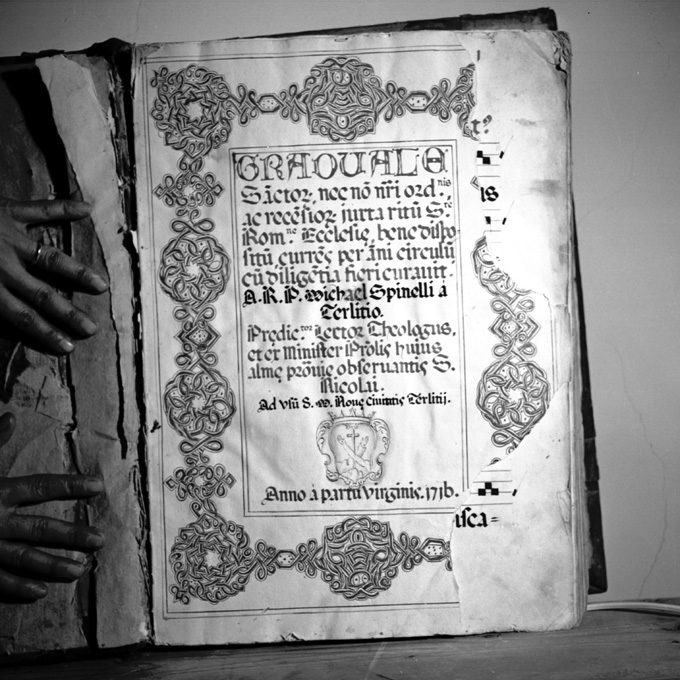 GRADUALE
Sāctor, nec nō nr̄i ord.nis
ac recēsior, juxta ritū S.te
Rom.ne Ecclesie, bene dispo
sitū, currēs per āni circulū
cū diligētia fieri curavit.
A. R. P. Michael Spinelli à
Terlitio.
Predic.tor Lector Theologus,
et ex Minister Prolis hujus
alme prōvie observantis S.
Nicolai.
Ad vsū S. M. Nove Civitatis Terlitij.
Anno à partu virginis. 1716.
is
isca=